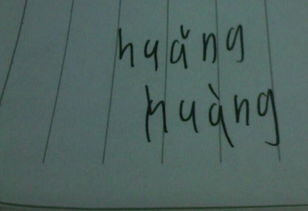 huǎng
huàng